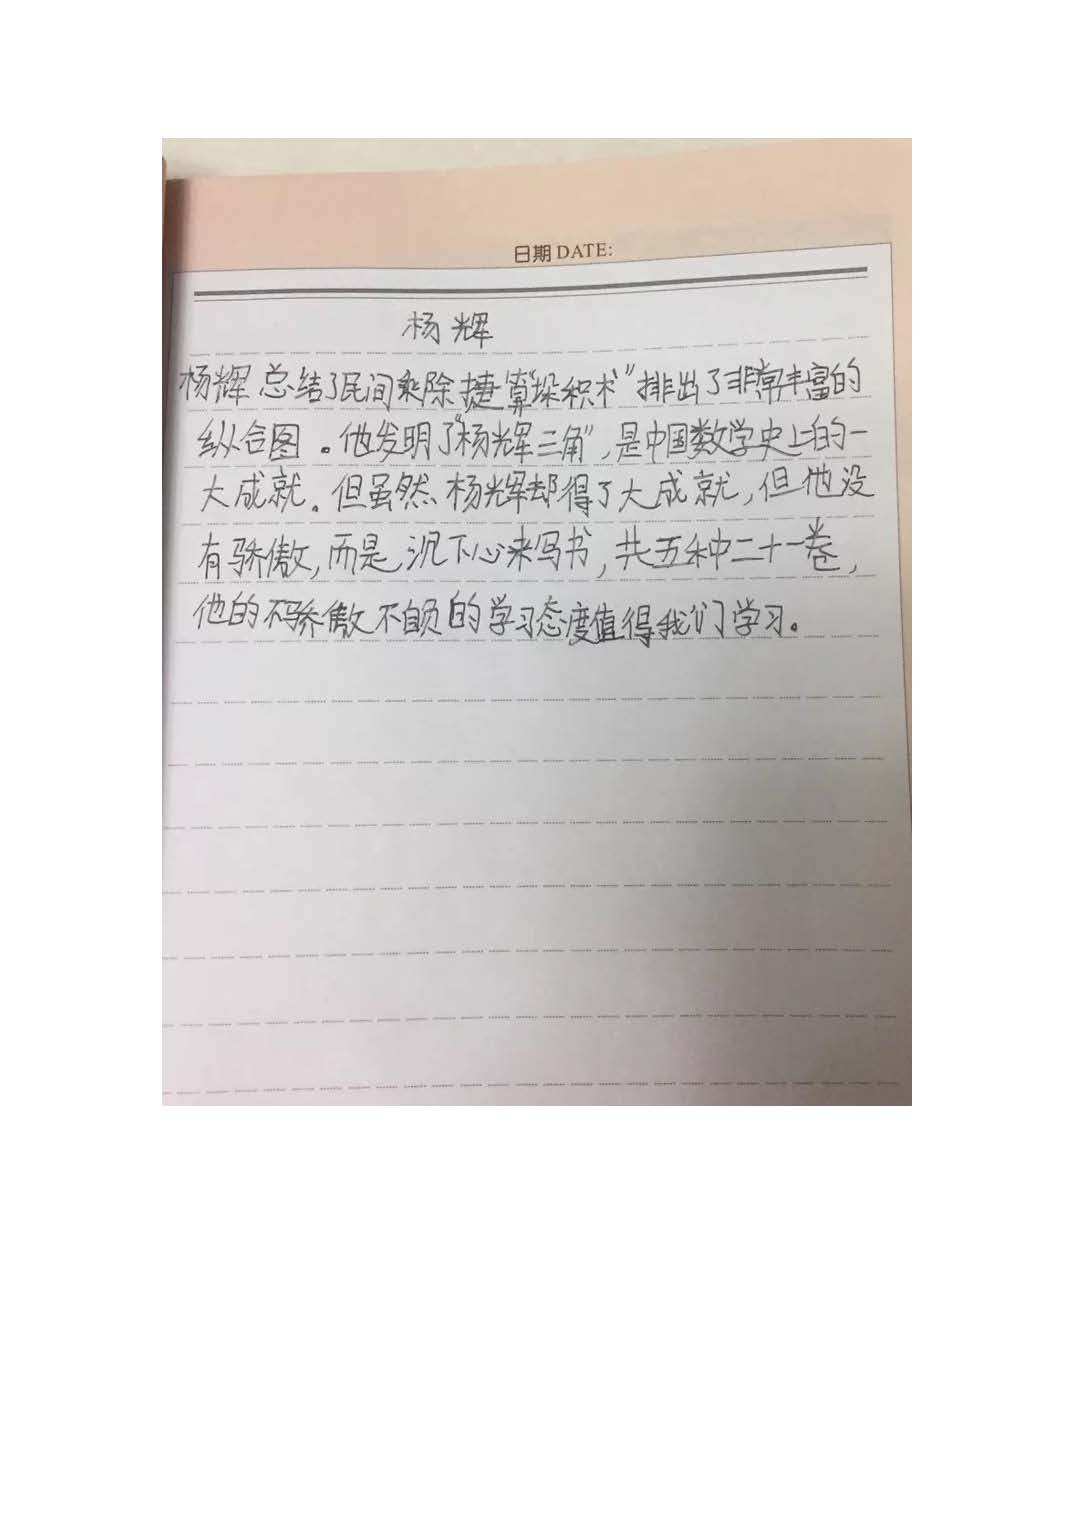 日期 DATE:
杨辉
杨辉总结了民间乘除捷算“垛积术”排出了非常丰富的
纵合图。他发明了“杨辉三角”,是中国数学史上的一
大成就。但虽然杨辉却得了大成就,但他没
有骄傲,而是沉下心来写书,共五种二十一卷,
他的不骄傲不自负的学习态度值得我们学习。